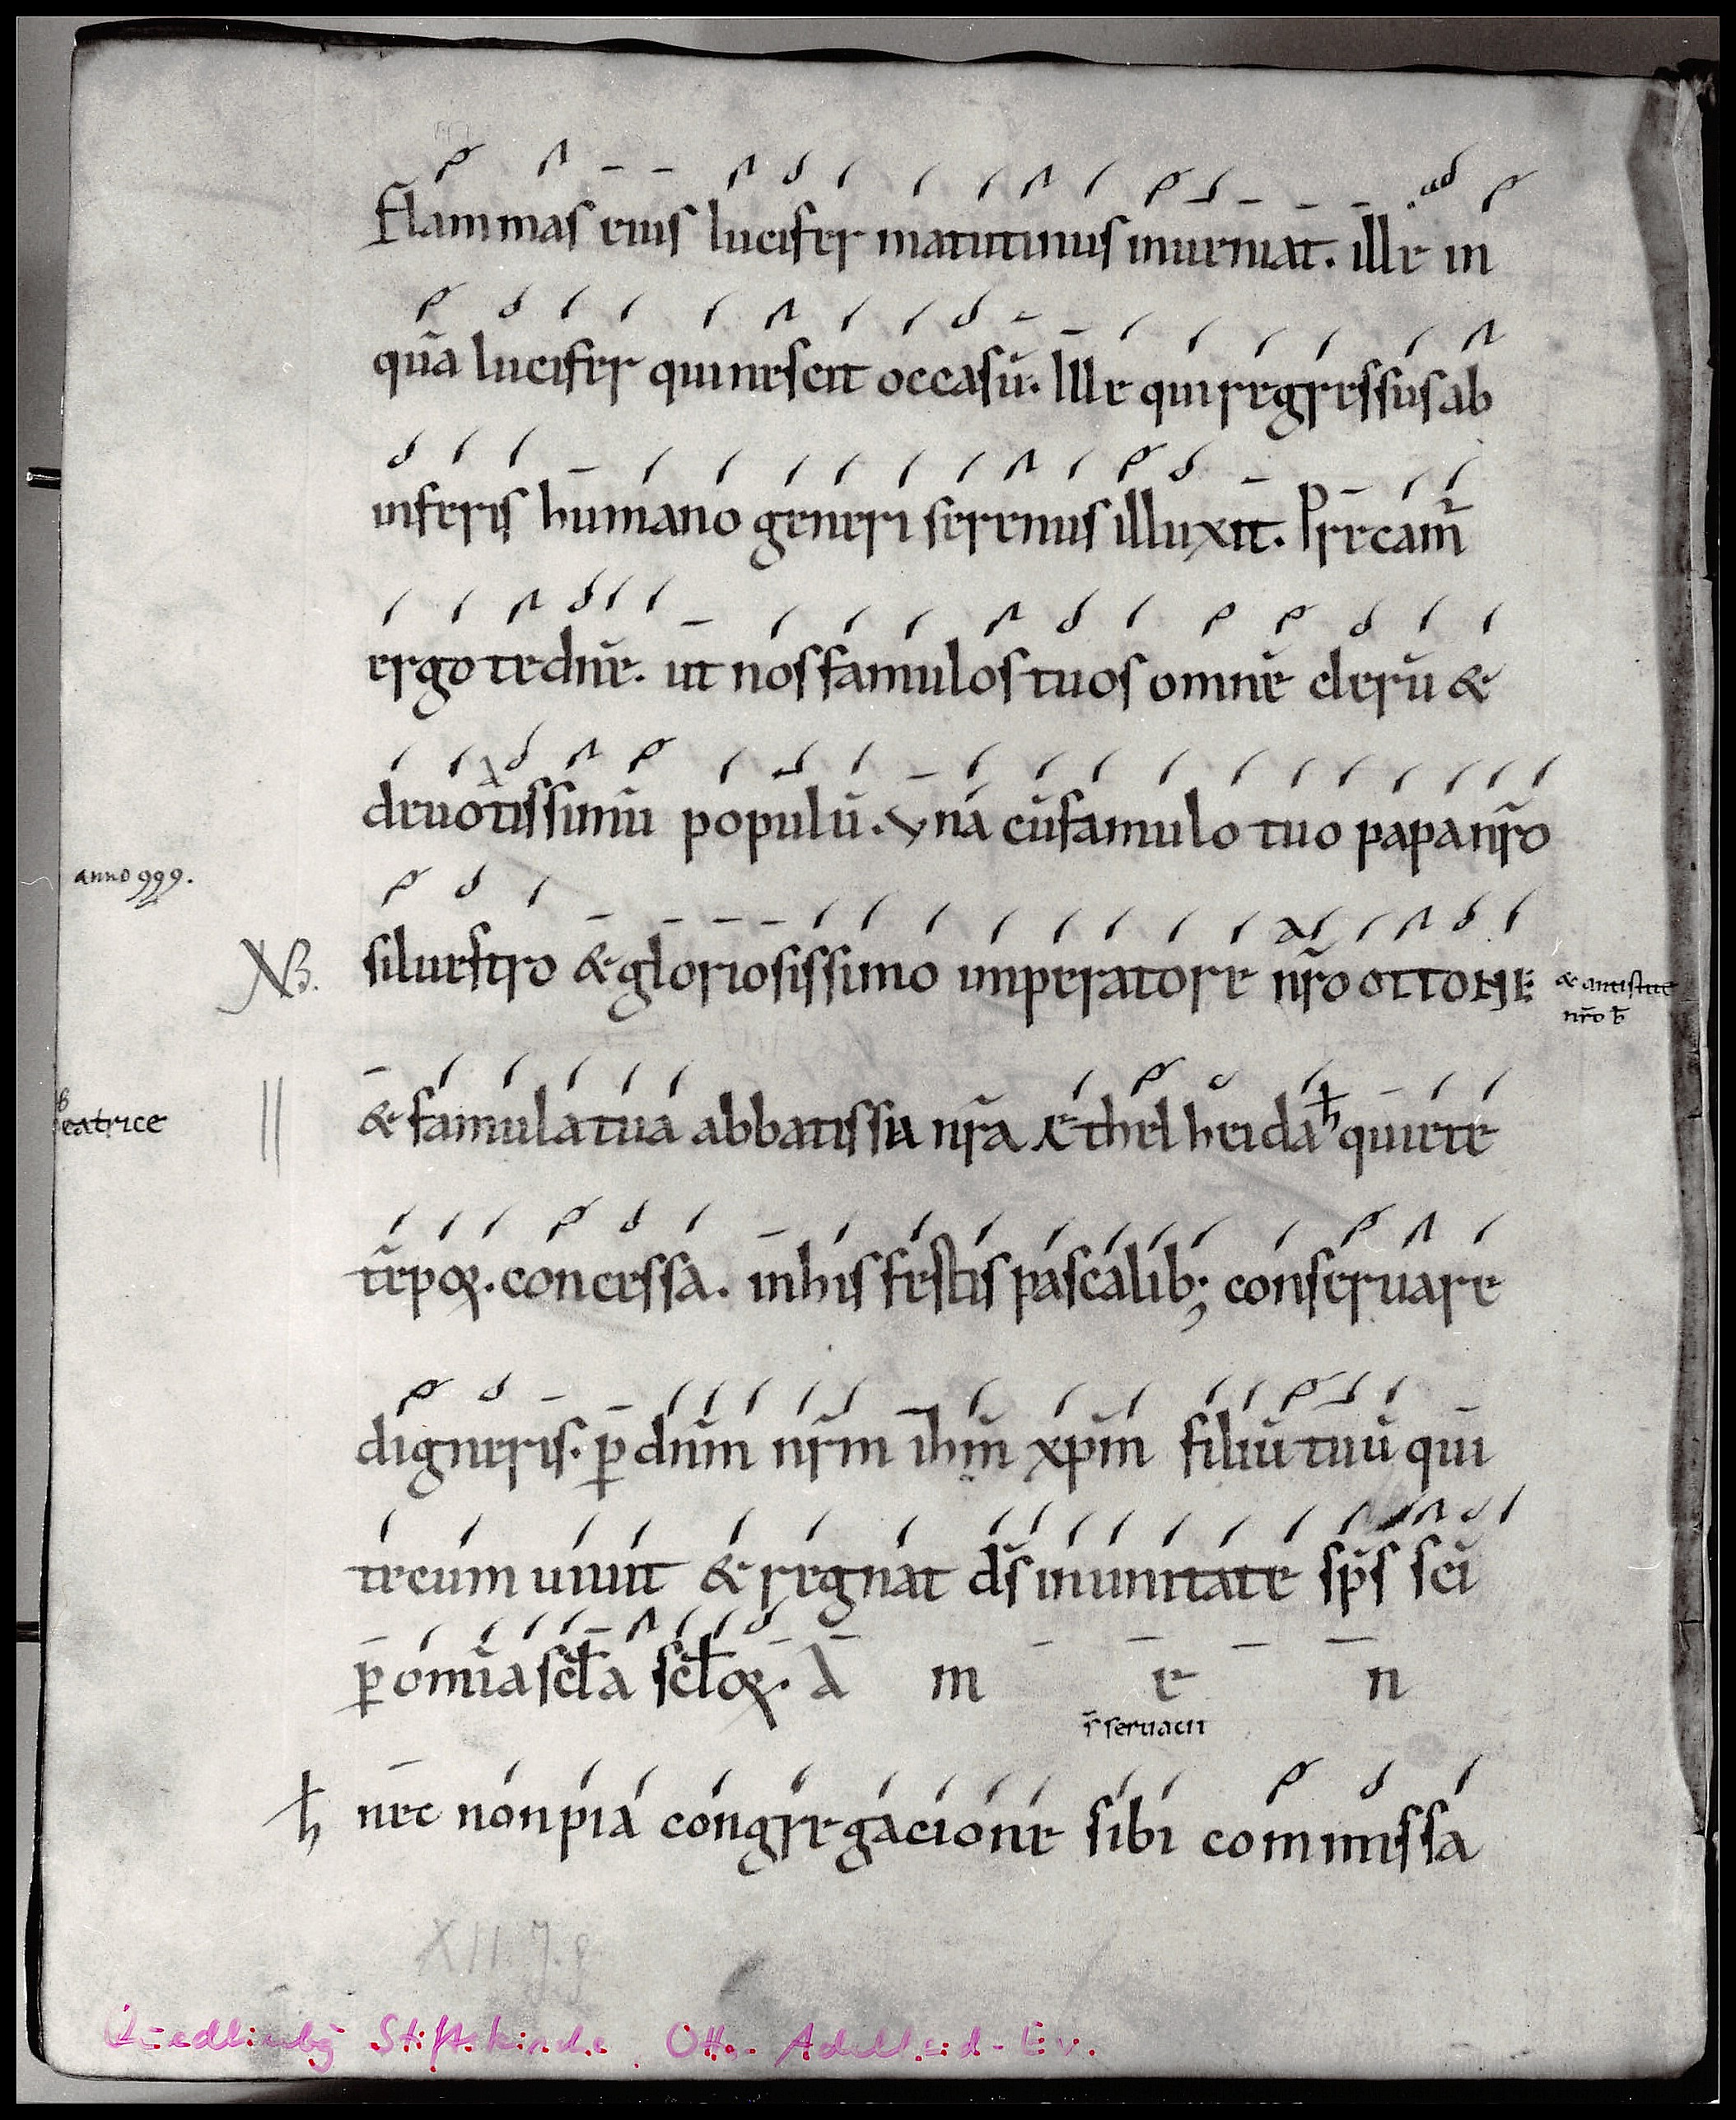 Flammas eius lucifer matutinus inueniat. ille in
quā lucifer qui nescit occasū. Ille qui regressus ab
inferis humano generi serenus illuxit. Precam̄
ergo te dn̄e. ut nos famulos tuos omnē clerū &
deuotissimū populū. Vna cū famulo tuo papa nr̄o
anno 999.
NB. siluestro & gloriosissimo imperatore nr̄o OTTONE & antistite
nr̄o b̄
Beatrice
& famula tua abbatissa nr̄a ethelheida ħ quiete
tēpoꝝ. concessa. in his festis pascalib; conseruare
digneris. ꝑ dn̄m nr̄m ihm̄ xp̄m filiū tuū qui
tecum uiuit & regnat d̄s in unitate sp̄s sc̄i
ꝑ omīa scl̄a scl̄oꝝ. A m e n
r̄ seruacit
ħ nec non pia congregacione sibi commissa
XII. J. g
Quedlinbg Stiftskirche. Otto-Adelheid-Ev.